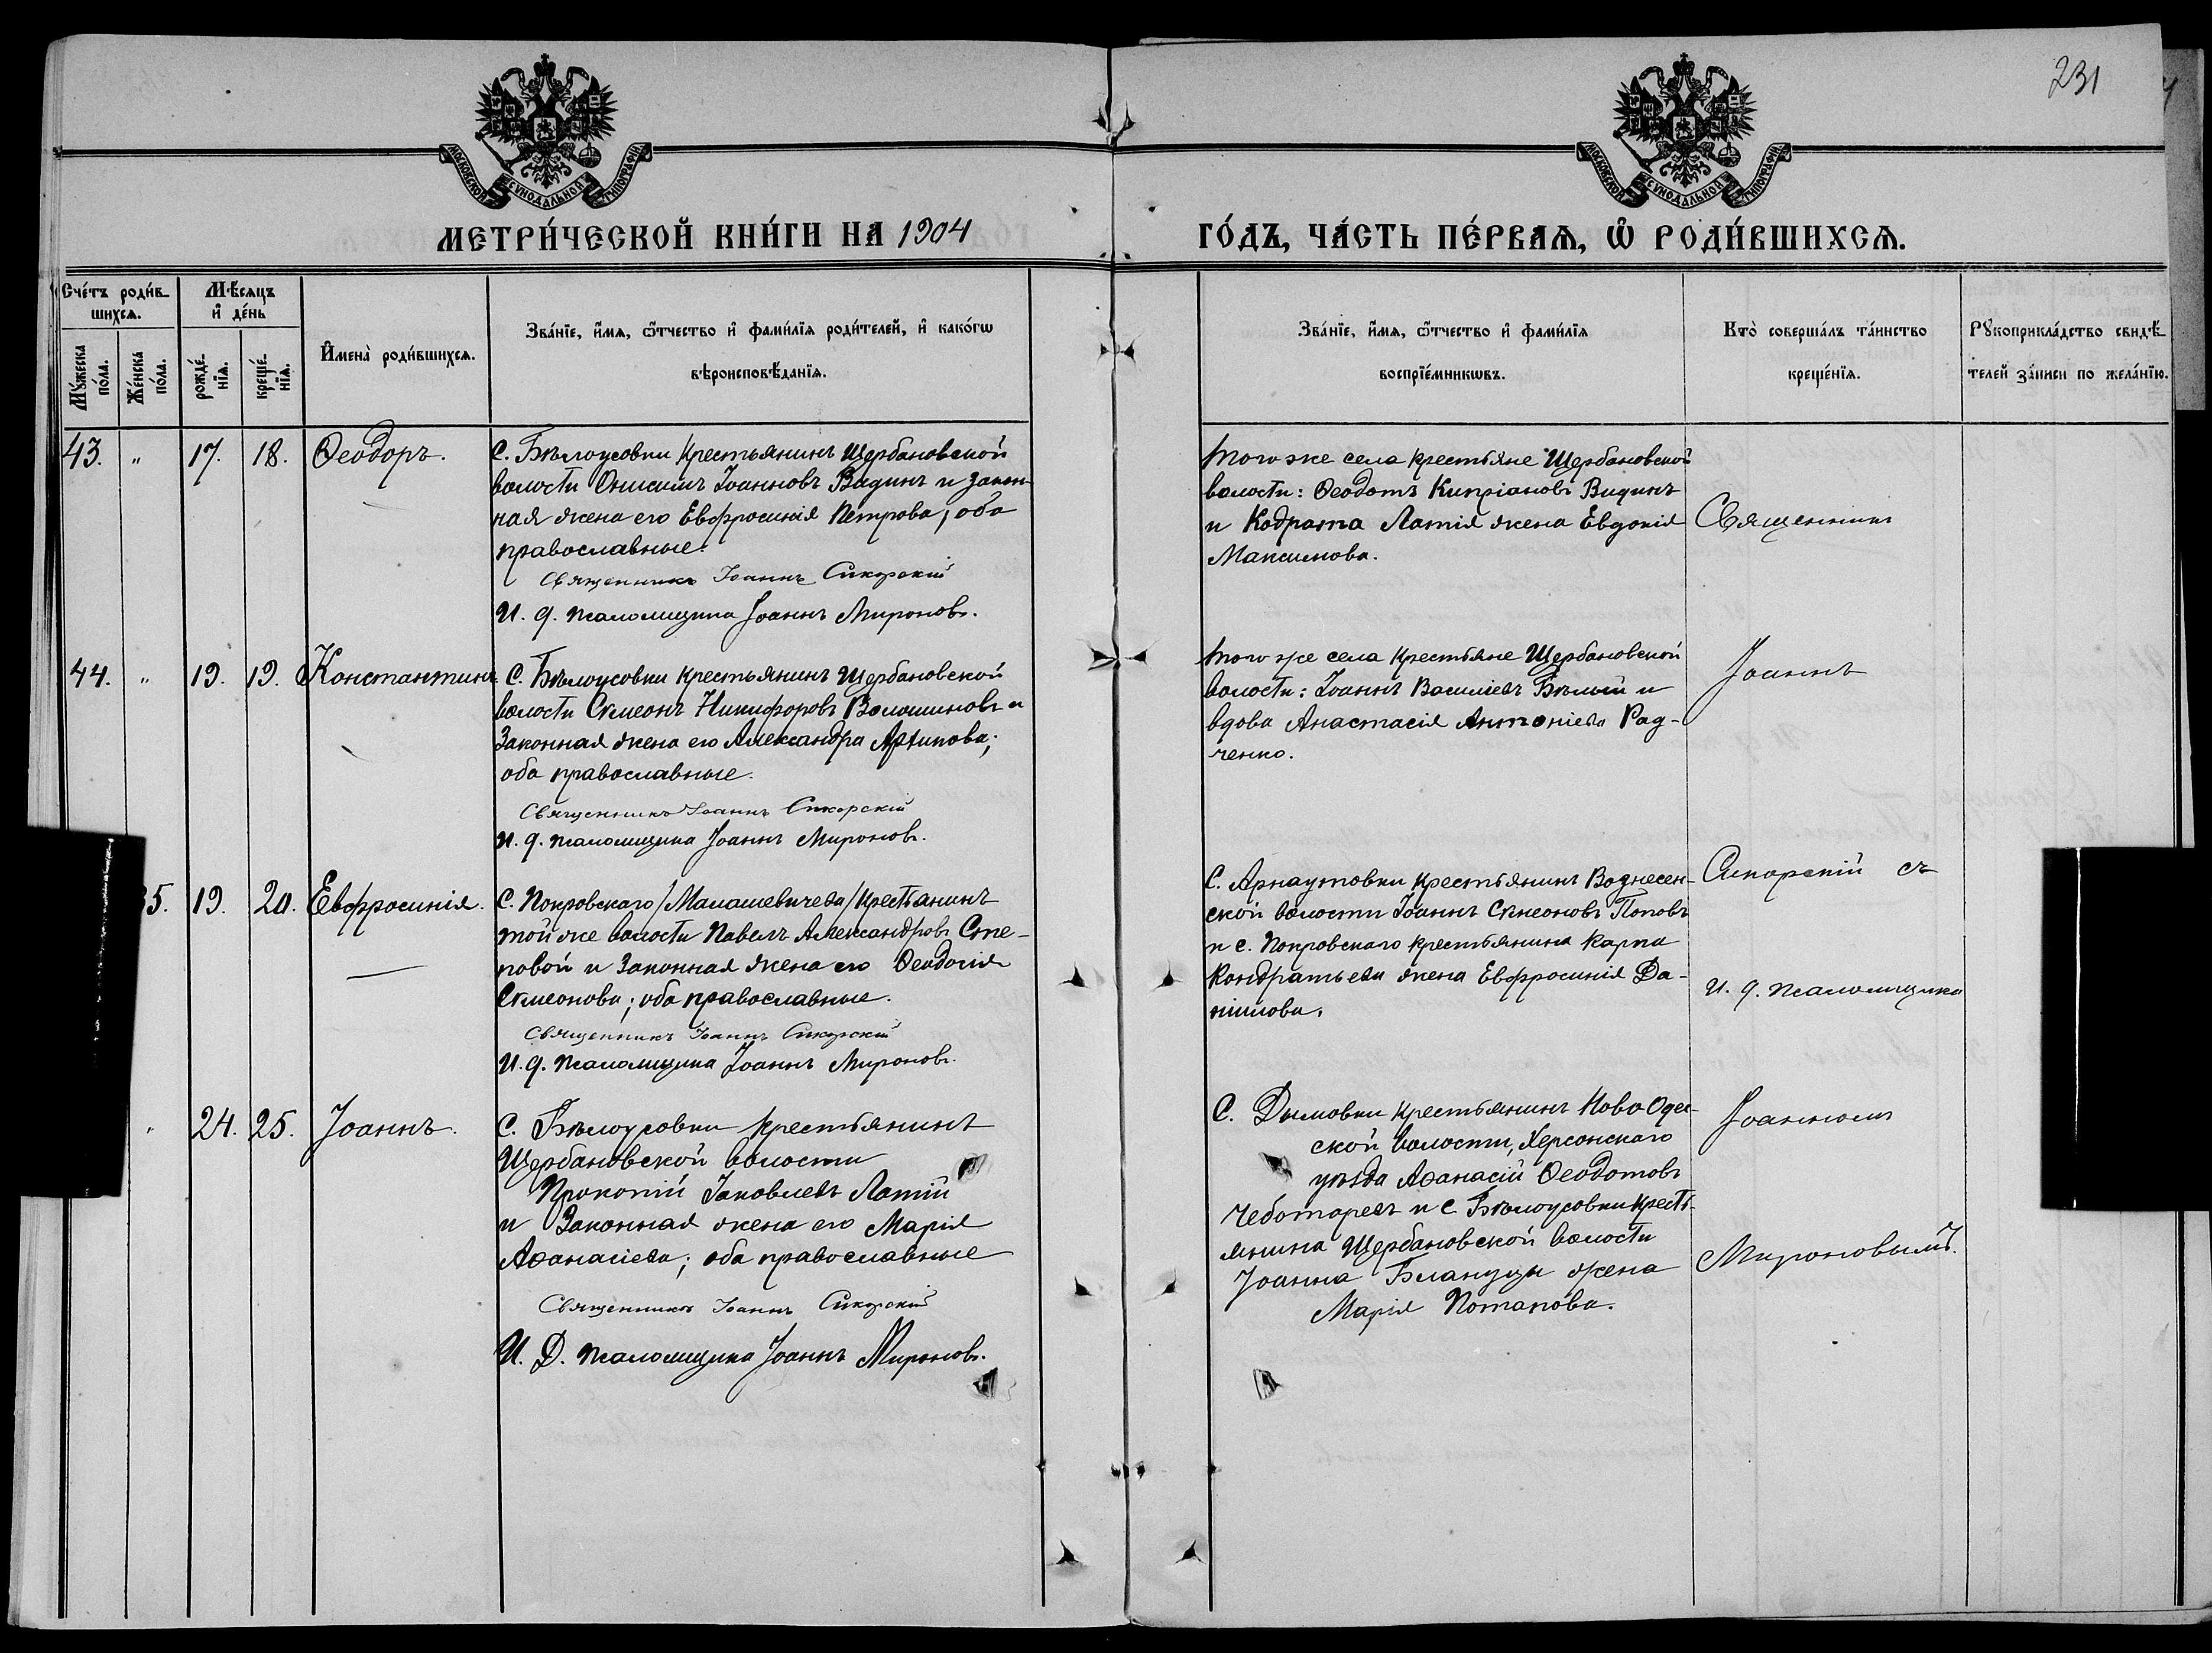 231
МОСКОВСКОЙ СУНОДАЛЬНОЙ ТИПОГРАФІИ
МОСКОВСКОЙ СУНОДАЛЬНОЙ ТИПОГРАФІИ
МЕТРИ́ЧЕСКОЙ КНИ́ГИ НА 1904
ГО́ДЪ, ЧА́СТЬ ПЕ́РВАЯ, Ѡ РОДИ́ВШИХСЯ.
Сче́тъ роди́в-
шихся.
Мѣ́сяцъ
и де́нь
Му́жеска
по́ла.
Же́нска
по́ла.
рожде́-
нїя.
креще́-
нїя.
Имена̀ роди́вшихся.
Зва́нїе, и́мя, ѻ́тчество и фами́лїя роди́телей, и како́гѡ
вѣроисповѣ́данїя.
Зва́нїе, и́мя, ѻ́тчество и фами́лїя
воспрїе́мникѡвъ.
Кто̀ соверша́лъ та́инство
креще́нїя.
Рукоприкла́дство свидѣ́-
телей за́писи по жела́нїю.
43. " 17. 18. Ѳеодоръ.
С. Бѣлоусовки крестьянинъ Щербановской
волости Онисимъ Іоанновъ Видинъ и закон-
ная жена его Евфросинія Петрова; оба
православные.
Священникъ Іоаннъ Сикорскій
И. д. псаломщика Іоаннъ Мироновъ.
того же села крестьяне Щербановской
волости: Ѳеодотъ Кипріановъ Видинъ
и Кодрата Латія жена Евдокія
Максимова.
44. " 19. 19. Константинъ.
С. Бѣлоусовки крестьянинъ Щербановской
волости Сѵмеонъ Никифоровъ Волошиновъ и
законная жена его Александра Архипова;
оба православные.
Священникъ Іоаннъ Сикорскій
И. д. псаломщика Іоаннъ Мироновъ.
того же села крестьяне Щербановской
волости: Іоаннъ Василіевъ Бѣлый и
вдова Анастасія Антоніева Рад-
ченко.
35. 19. 20. Евфросинія.
С. Покровскаго /Малашевичева/ крестьянинъ
той же волости Павелъ Александровъ Сте-
повой и законная жена его Ѳеодосія
Сѵмеонова; оба православные.
Священникъ Іоаннъ Сикорскій
И. д. псаломщика Іоаннъ Мироновъ.
С. Арнаутовки крестьянинъ Вознесен-
ской волости Іоаннъ Сѵмеоновъ Поповъ
и с. Покровскаго крестьянина Карпа
Кондратьева жена Евфросинія Да-
ніилова.
" 24. 25. Іоаннъ.
С. Бѣлоусовки крестьянинъ
Щербановской волости
Прокопій Іаковлевъ Латій
и законная жена его Марія
Аѳанасіева; оба православные
Священникъ Іоаннъ Сикорскій
И. Д. псаломщика Іоаннъ Мироновъ.
С. Дымовки крестьянинъ Ново Одес-
ской волости, Херсонскаго
уѣзда Аѳанасій Ѳеодотовъ
Чеботаревъ и с. Бѣлоусовки кресть-
янина Щербановской волости
Іоанна жена
Марія Потапова.
Священникъ
Іоаннъ
Сикорскій съ
и. д. псаломщика
Іоанномъ
Мироновымъ.